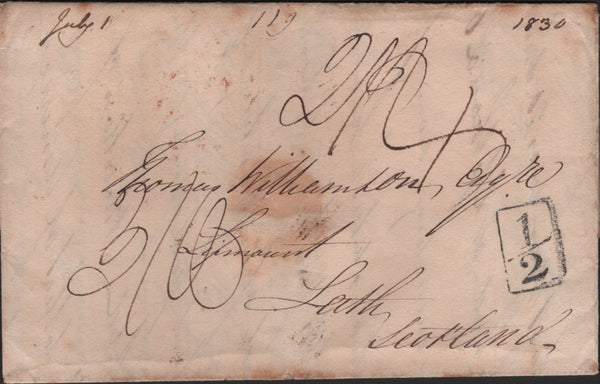 July 1 119 1830
2/2
Thomas Williamson, Esqre
Lixmount
Leith
Scotland
1/2